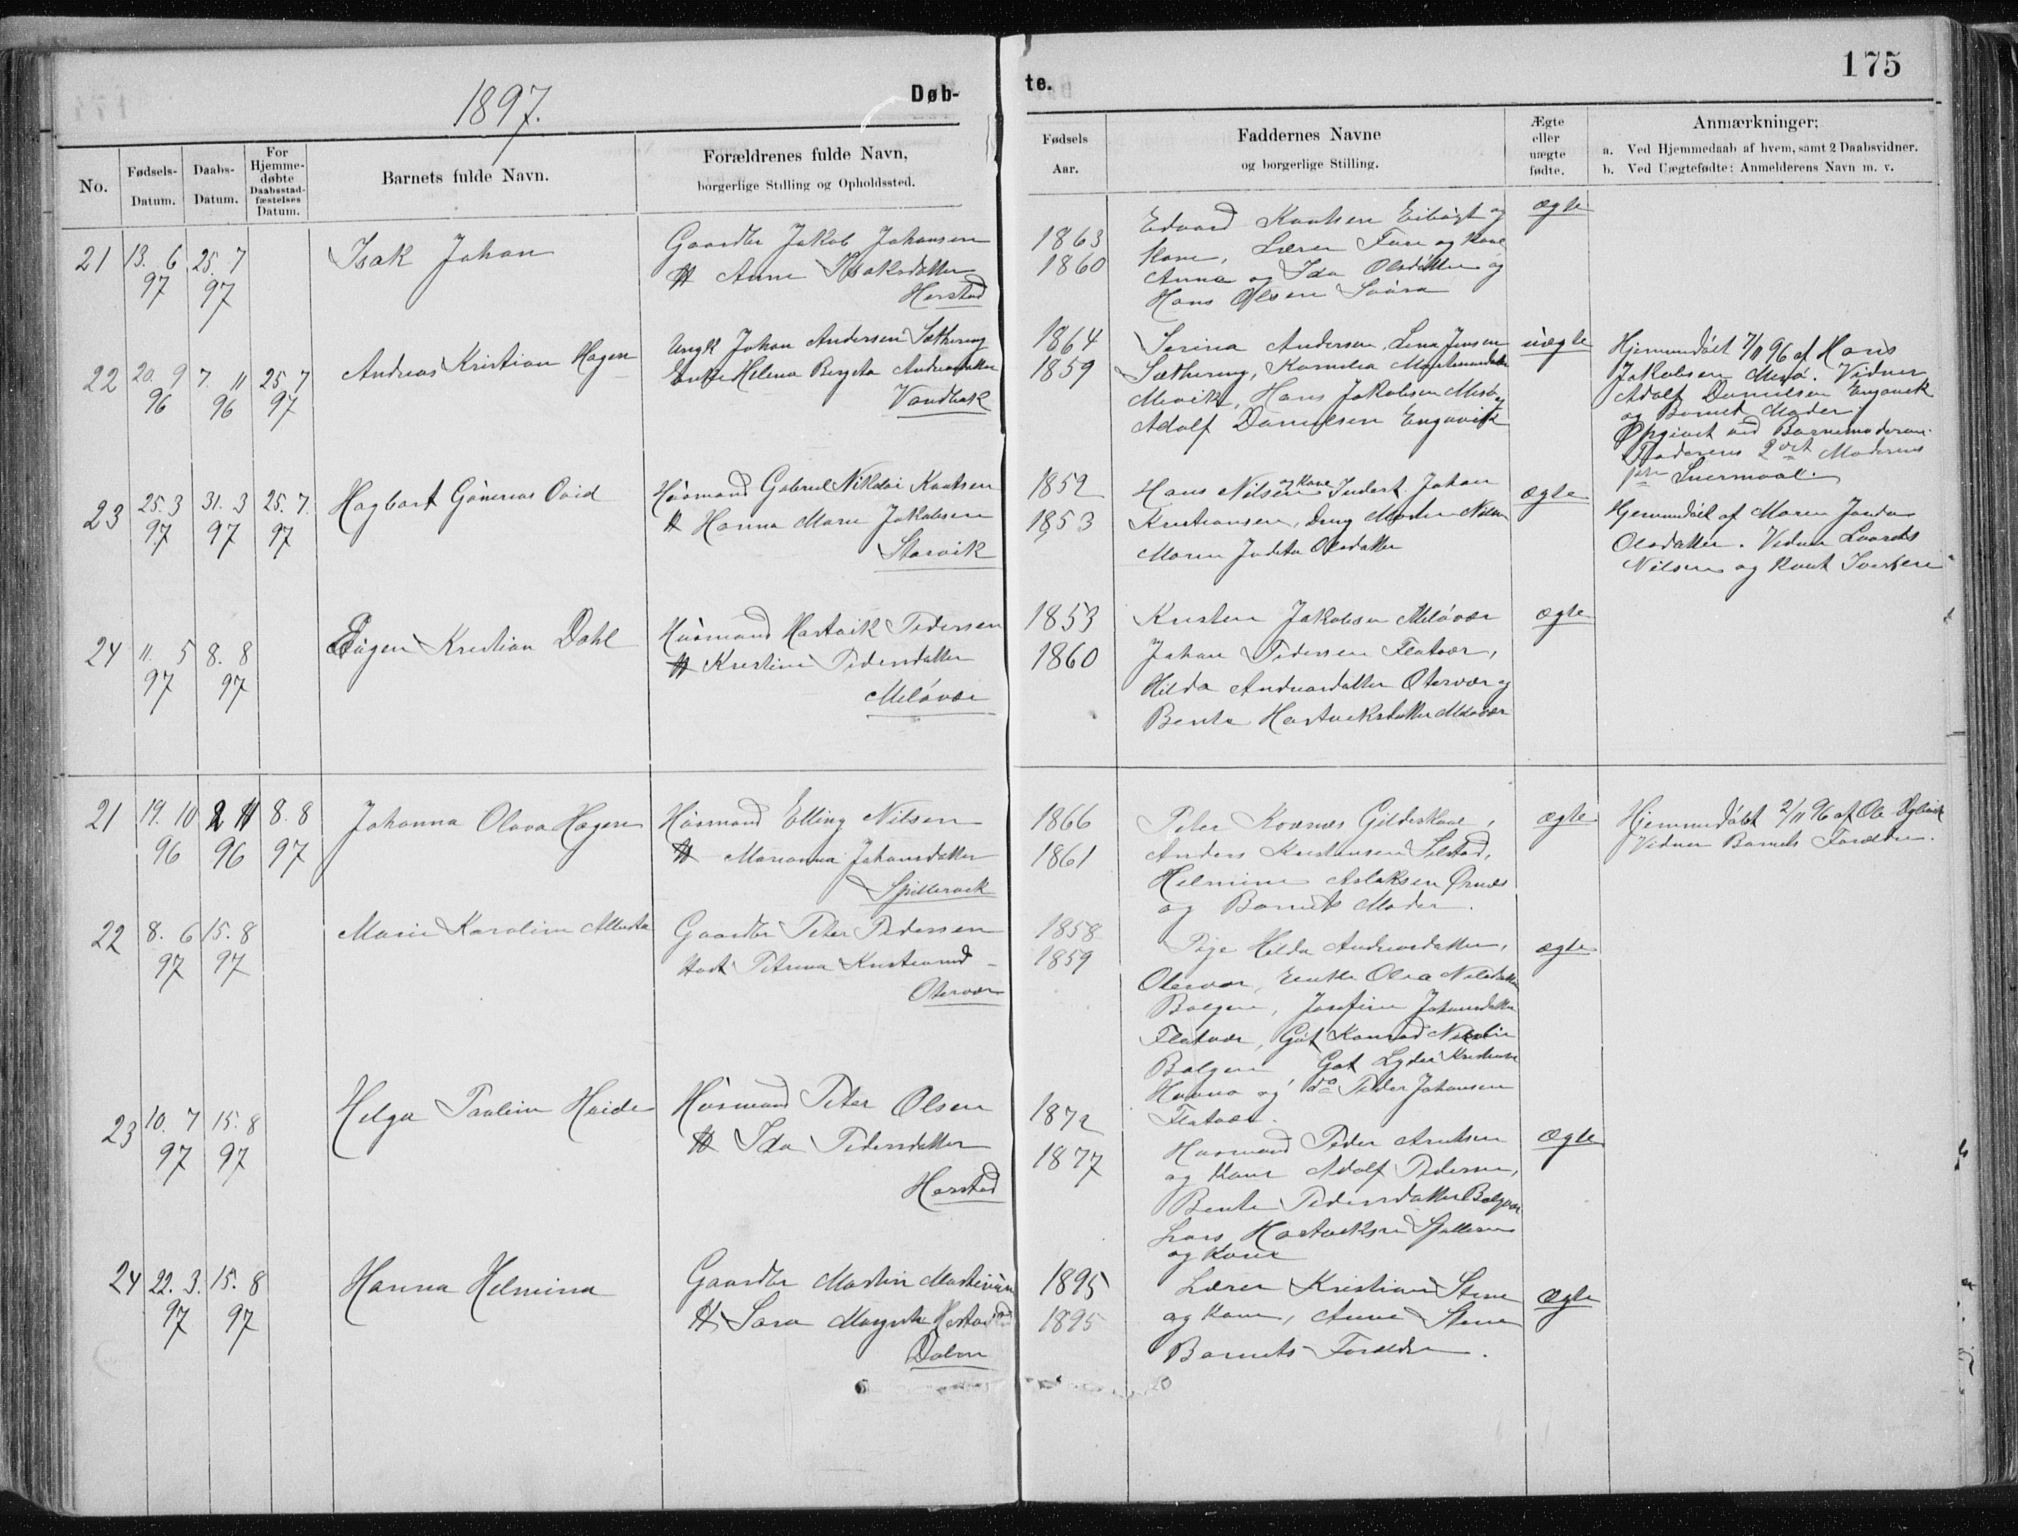 175
1897.
Døb-
te.
No.
Fødsels-
Datum.
Daabs-
Datum.
For
Hjemme-
døbte
Daabsstad-
fæstelses
Datum.
Barnets fulde Navn.
Forældrenes fulde Navn,
borgerlige Stilling og Opholdssted.
Fødsels
Aar.
Faddernes Navne
og borgerlige Stilling.
Ægte
eller
uægte
fødte.
Anmærkninger:
a. Ved Hjemmedaab af hvem, samt 2 Daabsvidner.
b. Ved Uægtefødte: Anmelderens Navn m. v.
21
13. 6
97
25. 7
97
Isak Johan
Gaardbr Jakob Johansen
H Anne Isaksdatter
Horstad
1863
1860
Edvard Knutsen og
Kone, Lærer og Kone
Anna og Ida Olsdatter og
Hans Olsen
ægte
22
20. 9
96
7. 11
96
25. 7
97
Andreas Kristian Hagen
Ungk Johan Andersen Sæthering
Enke Helena Bergeta Andreasdatter
Vandbak
1864
1859
Sorina Andersen, Lena Jensen
Sæthering, Kornelia
Mevik, Hans Jakobsen
Adolf Danielsen Engavik
uægte
Hjemmedøbt 7/11 96 af Hans
Jakobsen Mesø. Vidner
Adolf Danielsen Engavik
og Barnets Moder.
Opgivet ved Barnemoderen.
Faderens 2det Moderens
Leiermaal.
23
25. 3
97
31. 3
97
25. 7.
97
Hagbart Gönerius Ovid
Húsmand Gabriel Nikolai Knutsen
H Hanna Marie Jakobsen
Storvik
1852
1853
Hans Nilsen og Kone Johan
Kristiansen,
Maren Judeta Olsdatter
ægte
Hjemmedøbt af Maren
Olsdatter. Vidner
Nilsen og Knut Iversen
24
11. 5
97
8. 8
97
Eúgen Kristian Dahl
Húsmand Hartvik Pedersen
H Kristine Pedersdatter
Meløvær
1853
1860
Kristen Jakobsen Meløvær
Johan Pedersen Flatvær,
Hilda Andreasdatter Otervær og
Bente Hartviksdatter Meløvær
ægte
21
19. 10
96
2 11
96
8. 8
97
Johanna Olava Hagen
Húsmand Elling Nilsen
H Marianna Johansdatter
Spillervik
1866
1861
Peter Kosmos Gildeskaal,
Anders Kristensen Selstad,
Helmine Aslaksen Ørnes
og Barnets Moder.
ægte
Hjemmedøbt 2/11 96 af Ole
Vidner Barnets Forældre.
22
8. 6
97
15. 8
97
Marie Karoline
Gaardbr Peter Pedersen
Hust Petrina Kristiansd -
Otervær
1858
1859
Pige Hilda Andreasdatter,
Otervær, Enke Olea Nilsdatter
Bolgen, Josefine Johansdatter
Flatvær, Gút Konrad
Bolgen Gut Lyder Kristensen
Havna og do Peder Johansen
Flatvær.
ægte
23
10. 7
97
15. 8
97
Helga Pauline Heide
Húsmand Peter Olsen
H Ida Pedersdatter
Horstad
1872
1877
Husmand Peder Arntsen
og Kone Adolf Pedersen,
Bente Pedersdatter
Lars Hartviksen
og Kone
Ægte
24
22. 3.
97
15. 8
97
Hanna Helmina
Gaardbr Martin
H Sara
Dalen
1895
1895
Lærer Kristian Stene
og Kone, Anne Stene
Barnets Forældre.
Ægte